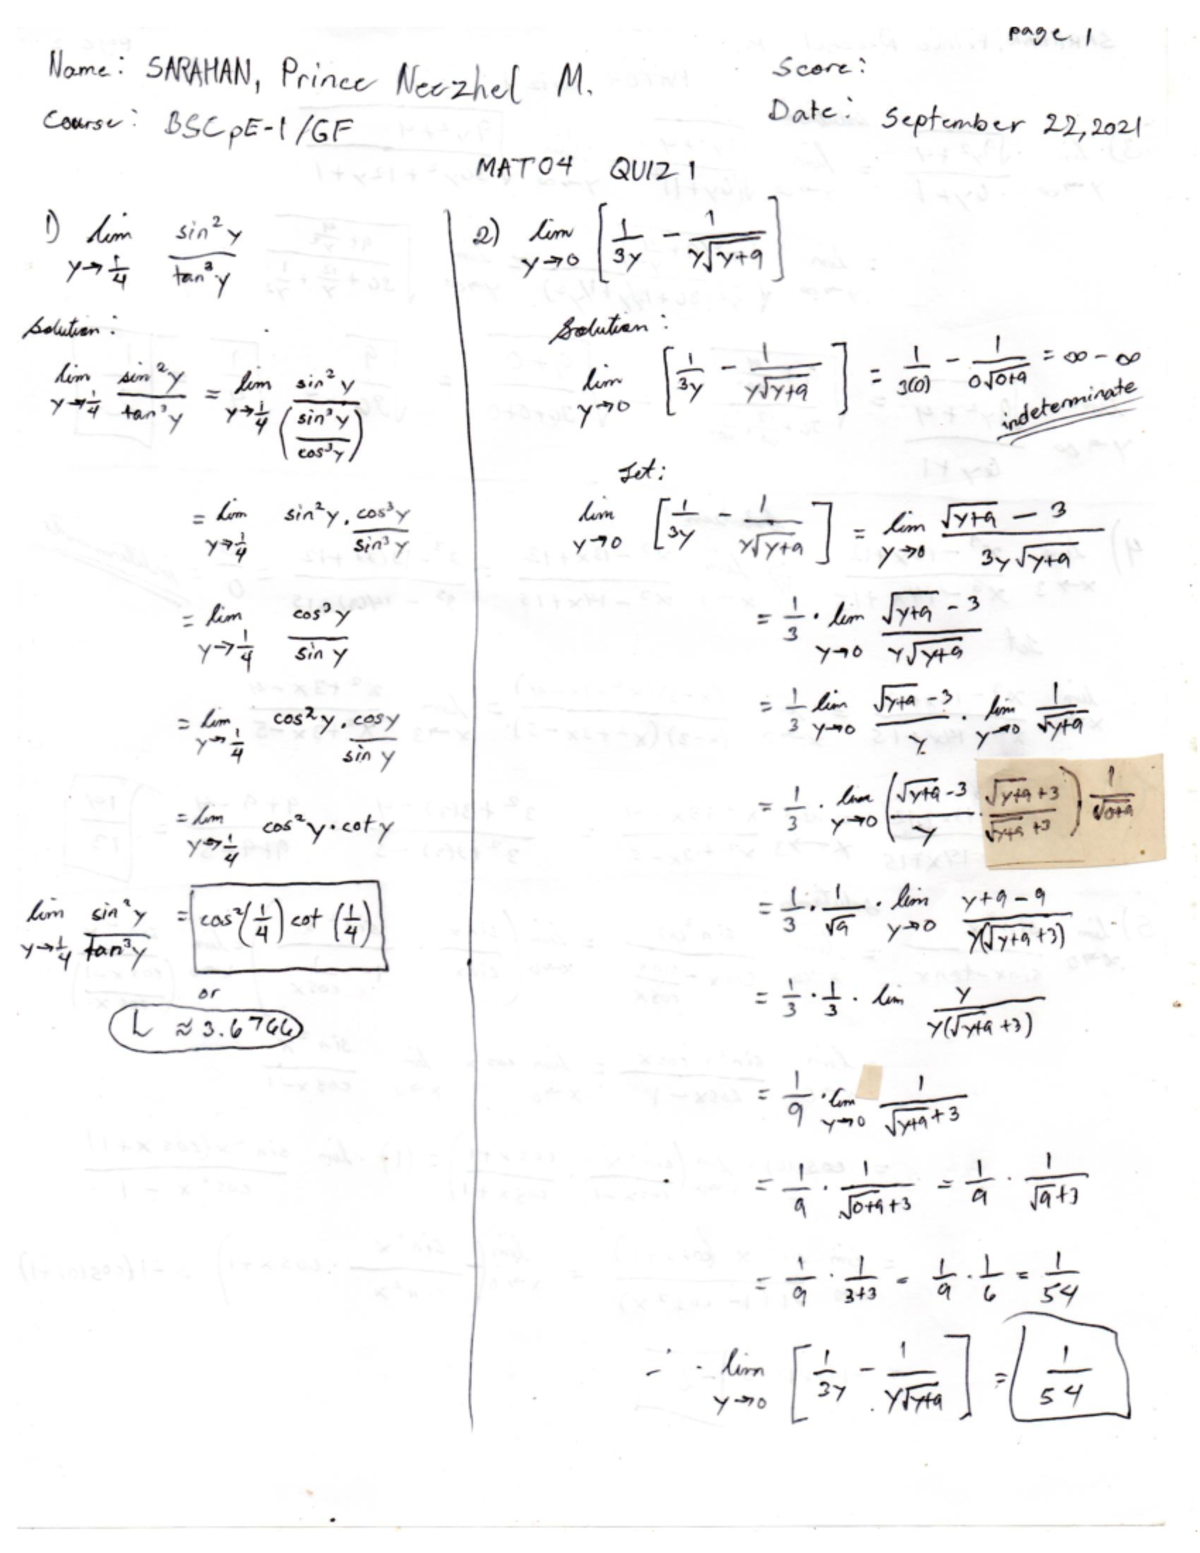 page 1
Name: SARAHAN, Prince Neezhel M.
Score:
Course: BSCpE-1/GF
Date: September 22, 2021
MAT04 QUIZ 1
1) lim y→1/4 sin²y / tan³y
Solution:
lim y→1/4 sin²y / tan³y = lim y→1/4 sin²y / (sin³y / cos³y)
= lim y→1/4 sin²y · cos³y / sin³y
= lim y→1/4 cos³y / sin y
= lim y→1/4 cos²y · cosy / sin y
= lim y→1/4 cos²y · cot y
lim y→1/4 sin²y / tan³y = cos²(1/4) cot (1/4)
or
L ≈ 3.6766
2) lim y→0 [1/3y - 1/y√y+9]
Solution:
lim y→0 [1/3y - 1/y√y+9] = 1/3(0) - 1/0√0+9 = ∞ - ∞
indeterminate
Let:
lim y→0 [1/3y - 1/y√y+9] = lim y→0 √y+9 - 3 / 3y√y+9
= 1/3 · lim y→0 √y+9 - 3 / y√y+9
= 1/3 lim y→0 √y+9 - 3 / y · lim y→0 1/√y+9
= 1/3 · lim y→0 (√y+9 - 3 / y · √y+9 + 3 / √y+9 + 3) 1/√0+9
= 1/3 · 1/√9 · lim y→0 y+9-9 / y(√y+9 + 3)
= 1/3 · 1/3 · lim y / y(√y+9 + 3)
= 1/9 · lim y→0 1 / √y+9 + 3
= 1/9 · 1/√0+9 + 3 = 1/9 · 1/√9+3
= 1/9 · 1/3+3 = 1/9 · 1/6 = 1/54
∴ lim y→0 [1/3y - 1/y√y+9] = 1/54